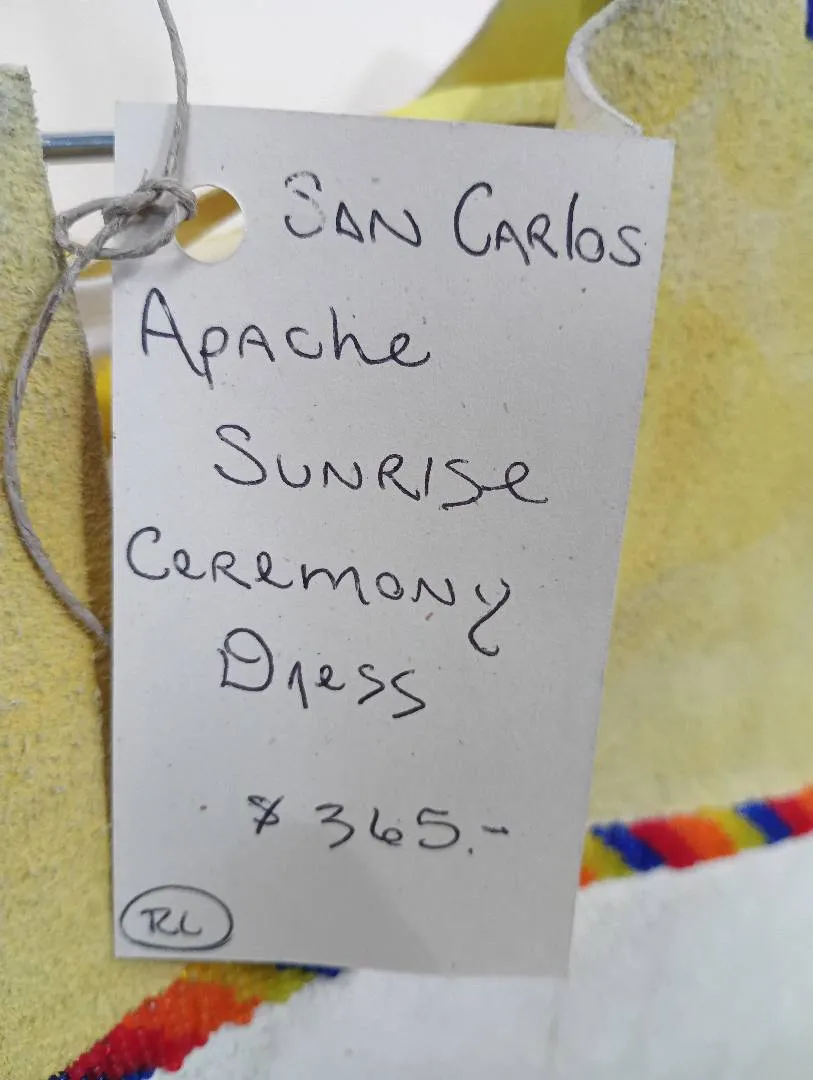 SAN CARlOS
APAChe
SUNRISe
CeRemONy
Dress
$ 365.-
RL